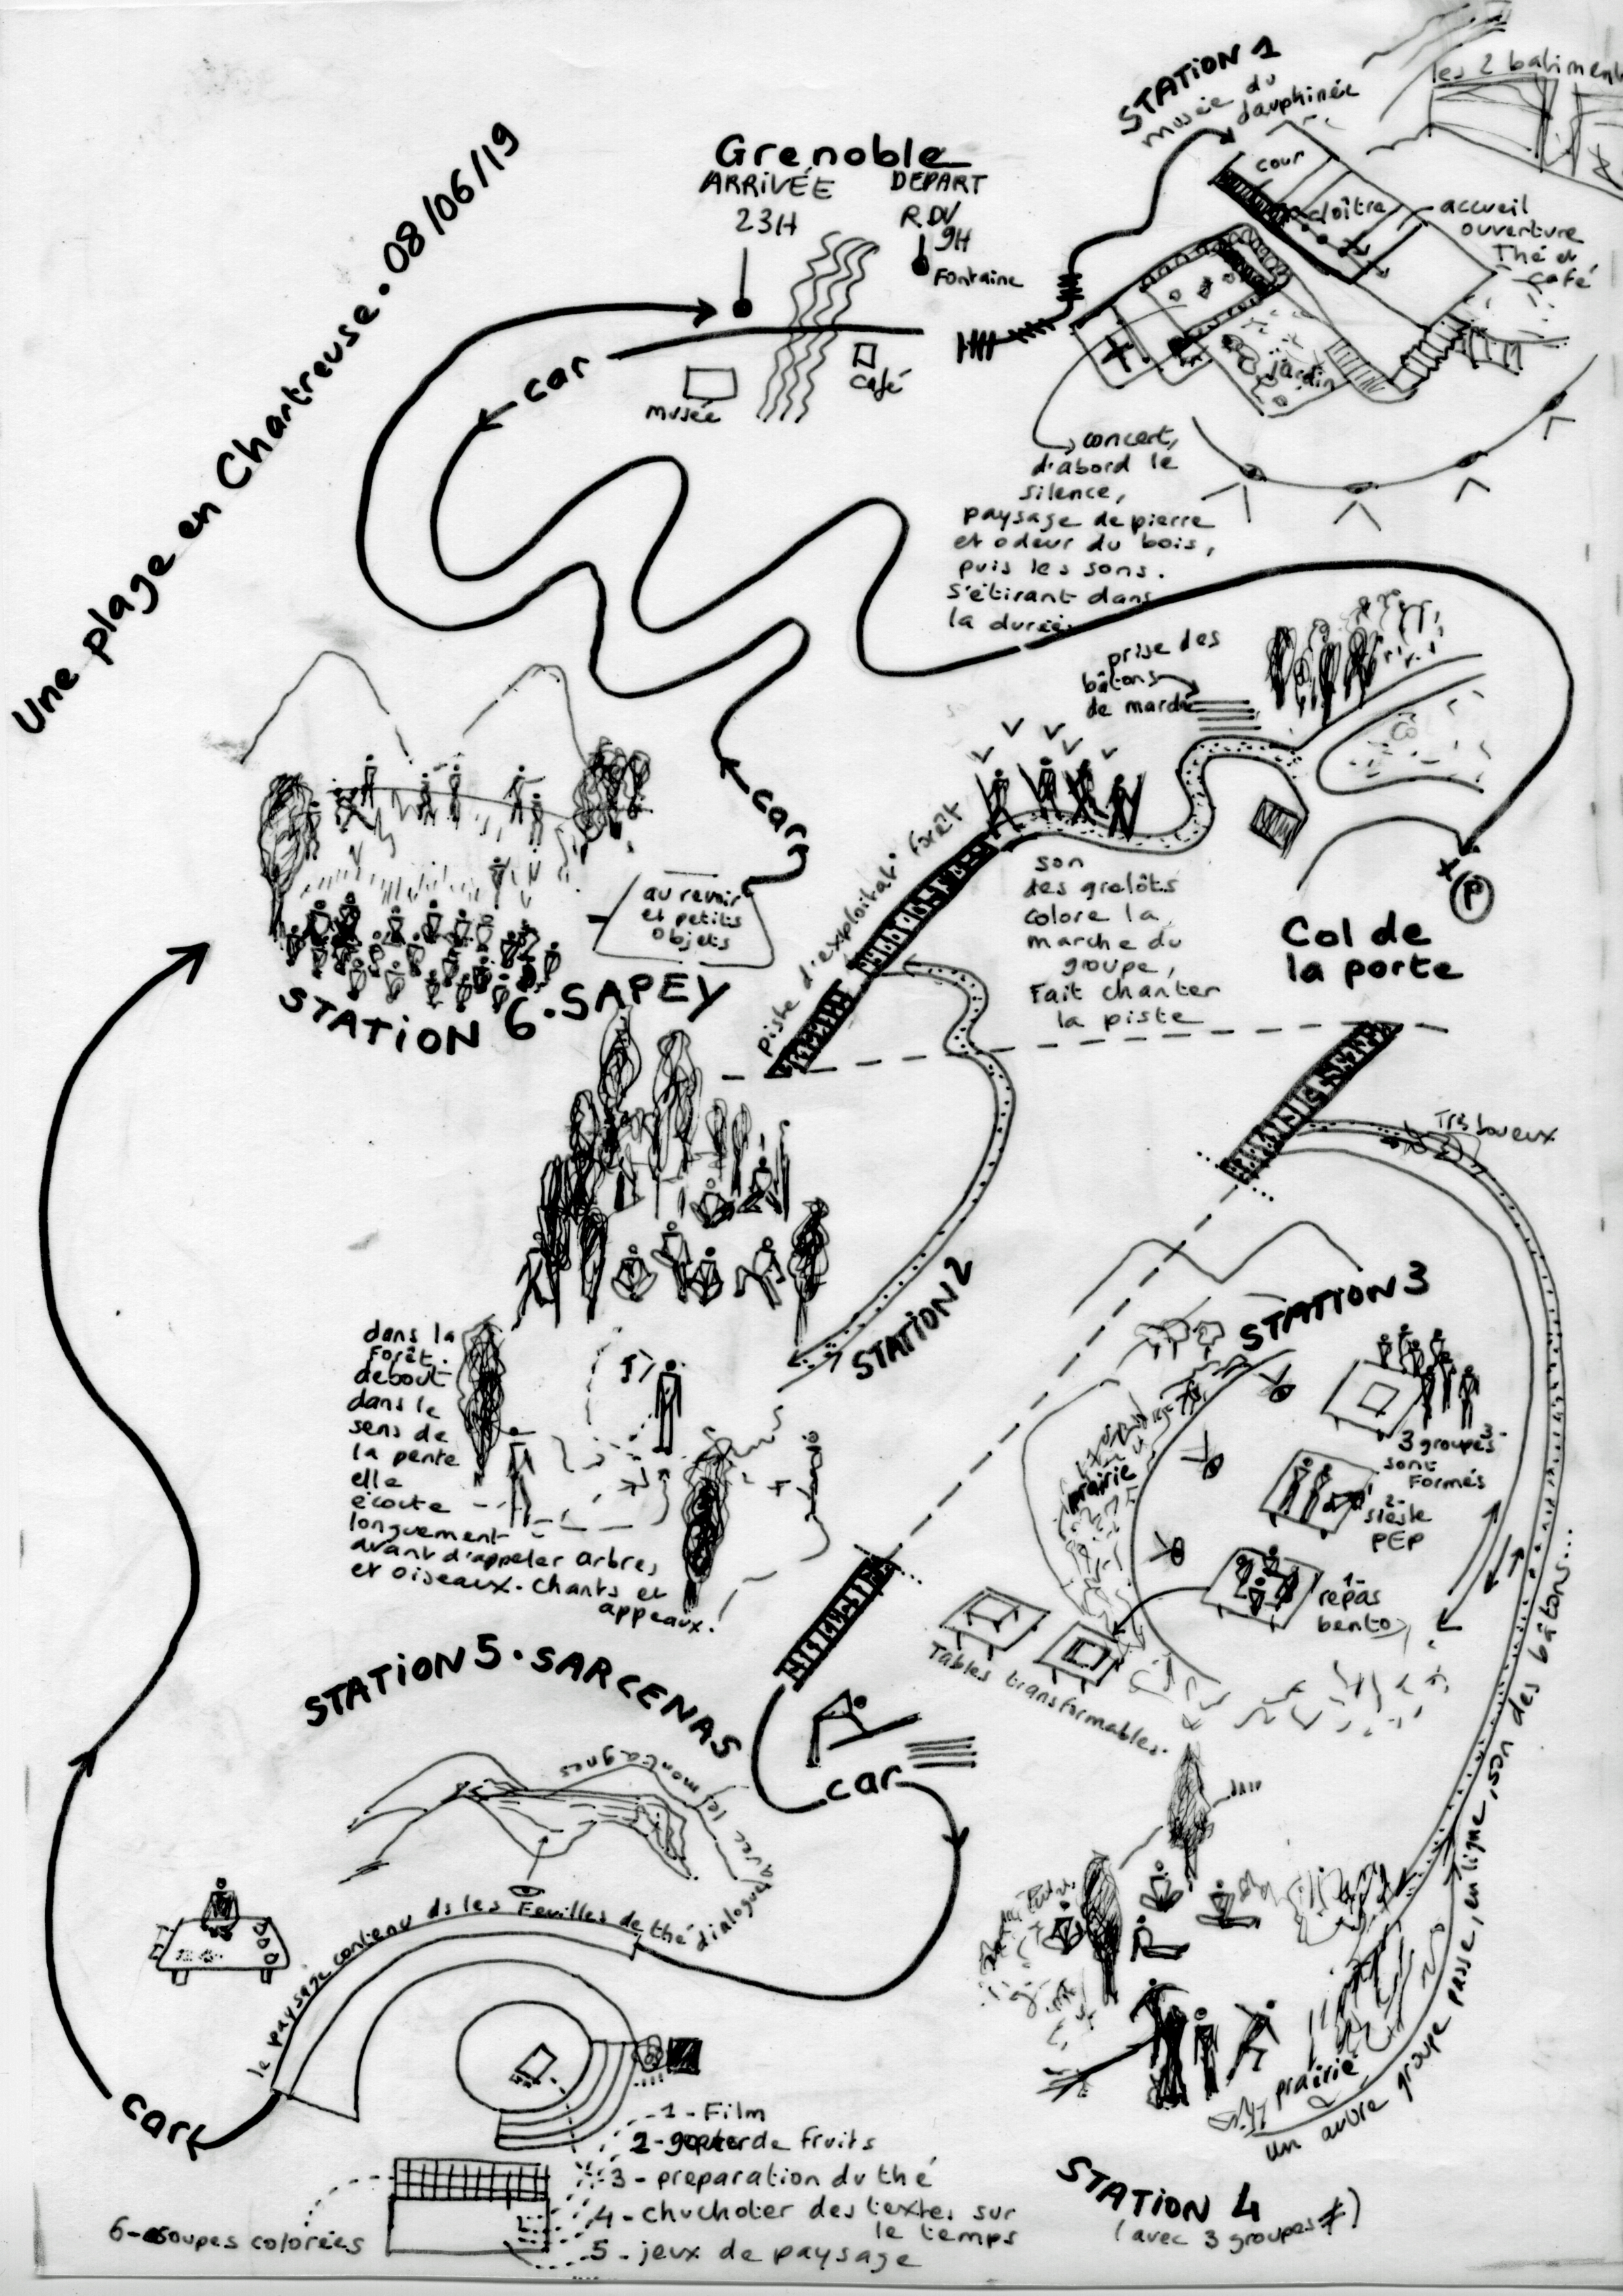 Une plage en Chartreuse. 08/06/19
Grenoble
ARRIVÉE
23H
DEPART
RDV
9H
Fontaine
car
musée
café
STATION 1
musée du
dauphinée
les 2 batiments
cour
cloître
accueil
ouverture
Thé et
café
jardin
concert,
d'abord le
silence,
paysage de pierre
et odeur du bois,
puis les sons.
S'étirant dans
la durée.
prise des
bâtons
de marche
piste d'exploitat° forêt
son
des grelôts
colore la
marche du
groupe,
Fait chanter
la piste
P
Col de
la porte
car
au revoir
et petits
objets
STATION 6. SAPEY
STATION 2
dans la
Forêt.
debout
dans le
sens de
la pente
elle
écoute
longuement
avant d'appeler arbres
et oiseaux. Chants et
appeaux!
Très boueux
STATION 3
prairie
3-
3 groupes
sont
Formés
2-
sieste
PEP
1-
repas
bento
Tables transformables.
un autre groupe passe, en ligne, son des bâtons...
prairie
STATION 4
(avec 3 groupes ≠)
car
STATION 5. SARCENAS
le paysage contenu ds les Feuilles de thé dialogue
avec les montagnes
car
1- Film
2- de fruits
3- preparation du thé
4- chuchoter des textes sur
le temps
5- jeux de paysage
6- soupes colorées